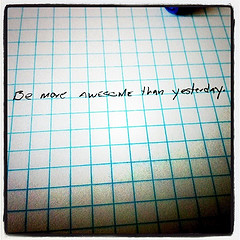 Be more awesome than yesterday.